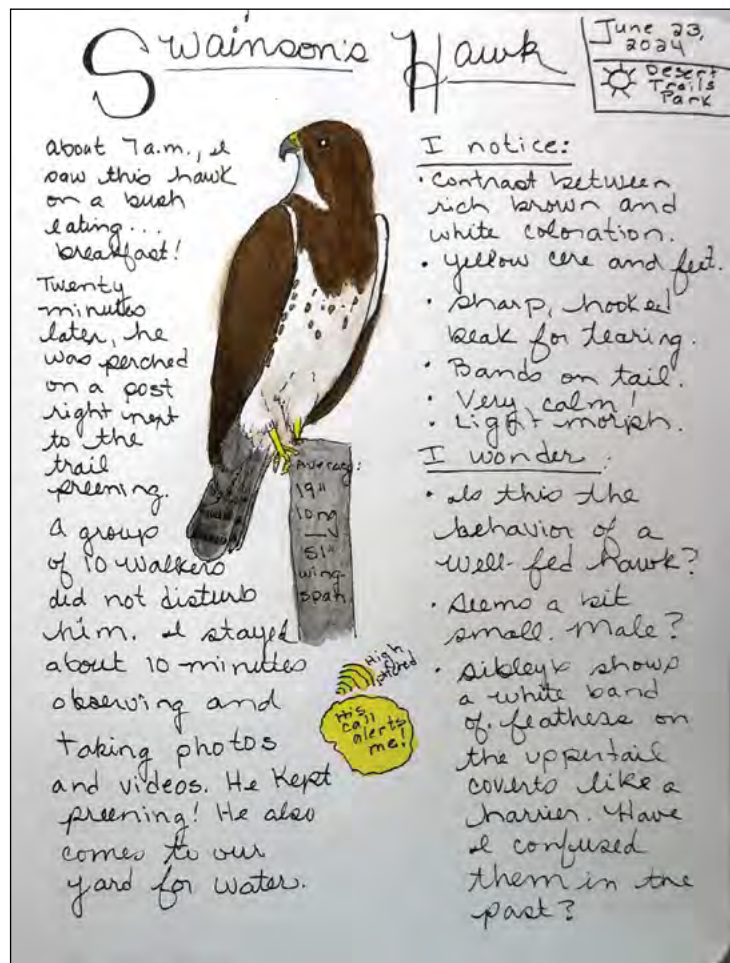 Swainson's Hawk
June 23,
2024
Desert
Trails
Park
about 7 a.m., I
saw this hawk
on a bush
eating...
breakfast!
Twenty
minutes
later, he
was perched
on a post
right next
to the
trail
preening.
A group
of 10 walkers
did not disturb
him. I stayed
about 10 minutes
observing and
taking photos
and videos. He kept
preening! He also
comes to our
yard for water.
Average:
19"
long
51"
wing-
span.
High
pitched
His
call
alerts
me!
I notice:
• Contrast between
rich brown and
white coloration.
• yellow cere and feet.
• sharp, hooked
beak for tearing.
• Bands on tail.
• Very calm!
• Light morph.
I wonder:
• Is this the
behavior of a
well-fed hawk?
• Seems a bit
small. Male?
• Sibley's shows
a white band
of feathers on
the uppertail
coverts like a
harrier. Have
I confused
them in the
past?